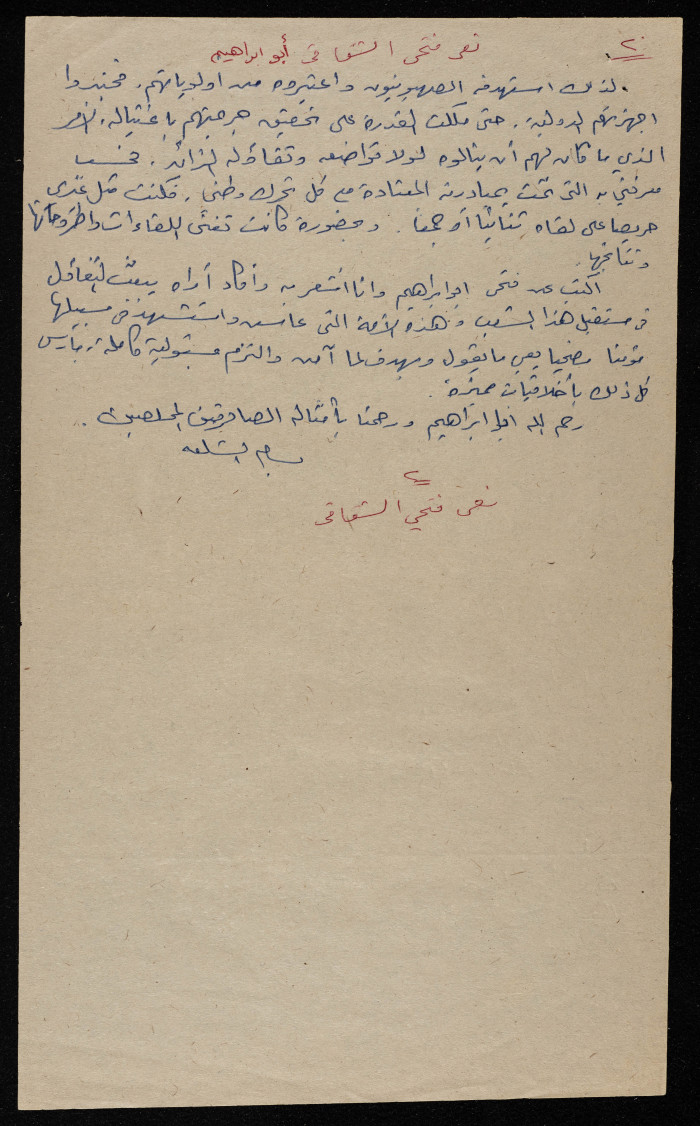 ٢
نعى فتحى الشقاقى أبو ابراهيم
لذلك استهدفه الصهيونيون واعتبروه من اولوياتهم. فجندوا
اجهزتهم الدولية. حتى ملكت القدرة على تحقيق جريمتهم باغتياله. الأمر
الذي ما كان لهم أن ينالوه لولا تواضعه وتفاؤله الزائد. فحسب
معرفتي به التى تمت بمبادرته المعتادة مع كل تحرك وطنى. فكنت مثل غيرى
حريصا على لقاه ثنائيا أو جمعا. وبحضوره كانت تغنى اللقاءات واطروحاتها
ونتائجها.
اكتب عن فتحى ابو ابراهيم وانا اشعر به وأكاد أراه يبعث التفاؤل
فى مستقبل هذا الشعب وهذه الأمة التى عاش واستشهد فى سبيلها
مؤمنا مضحيا يعى ما يقول ويهدف لما آمن والتزم بمسئولية كاملة. يمارس
كل ذلك بأخلاقيات مميزة.
رحم الله ابو ابراهيم ورحمنا بأمثاله الصادقين المخلصين.
بسام الشكعه
٢
نعى فتحي الشقاقى